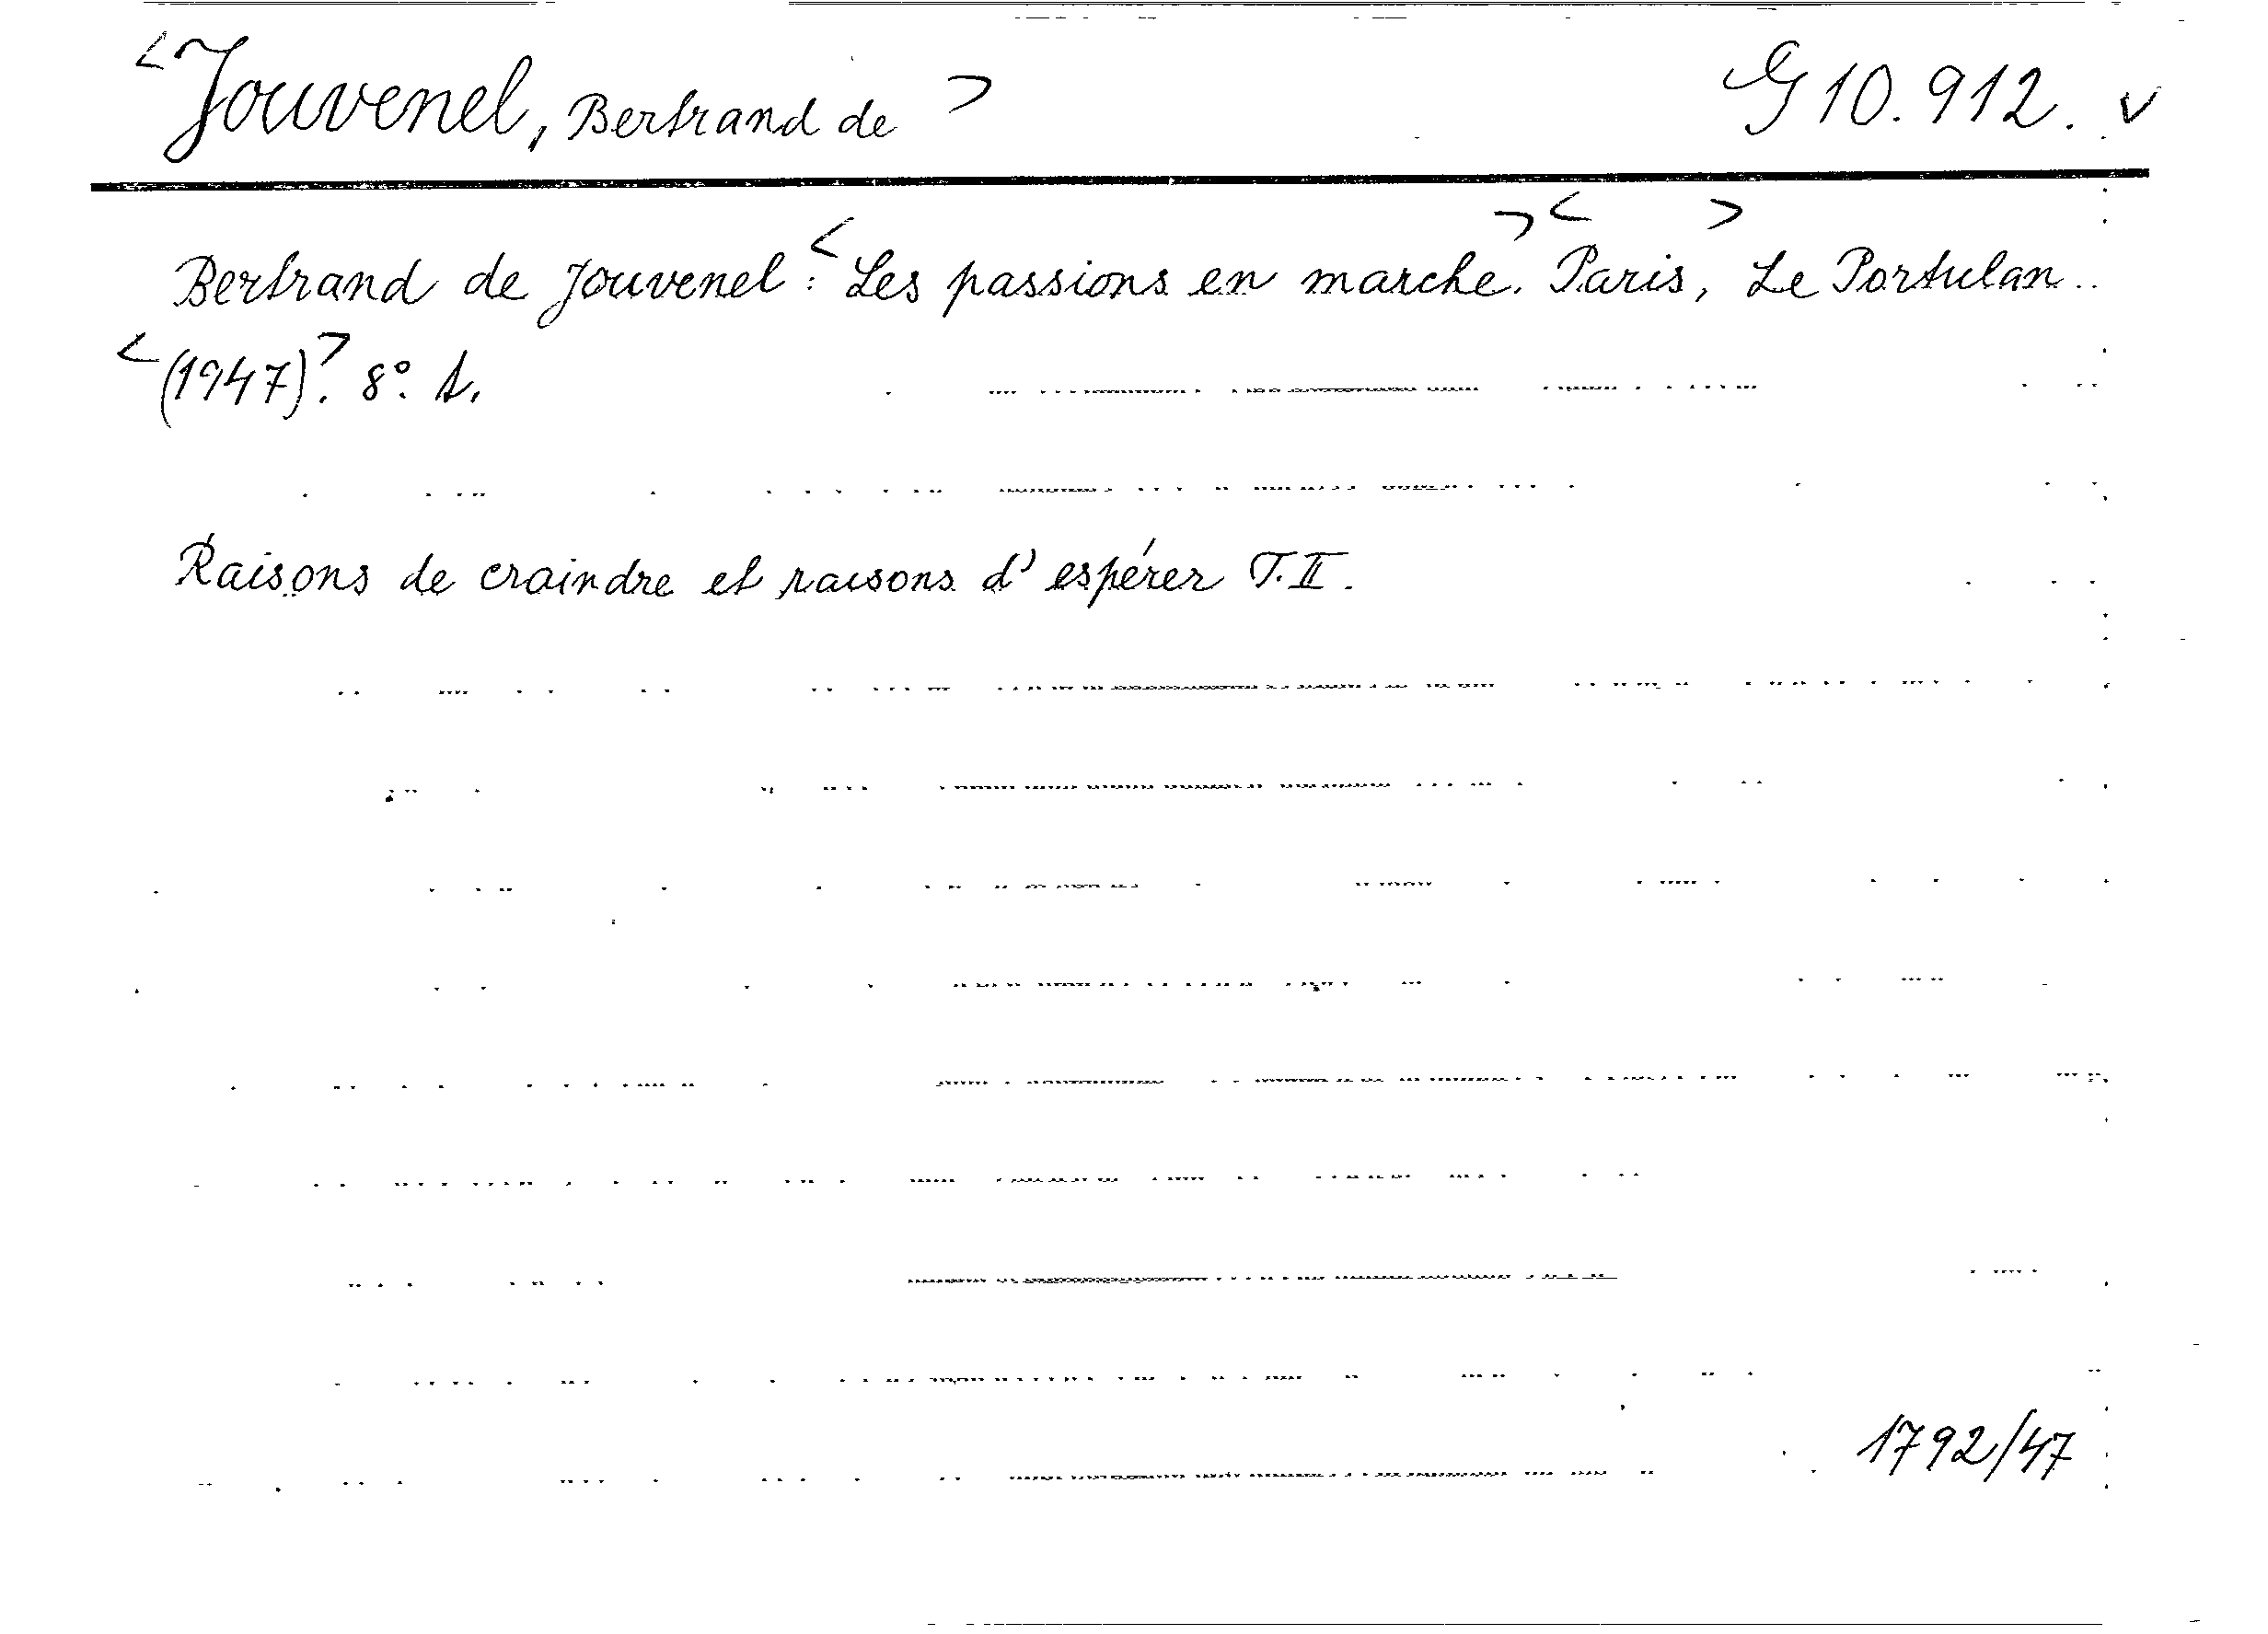 <Jouvenel, Bertrand de> G 10.912. v
Bertrand de Jouvenel: <Les passions en marche.> <Paris,> Le Portulan.
<(1947)>. 8°. 1.
Raisons de craindre et raisons d'espérer T. II.
1792/47